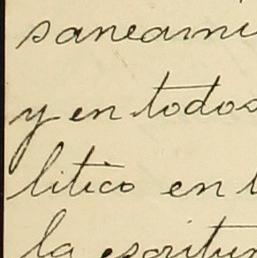 saneami
y en todos
litico en l
la escritur